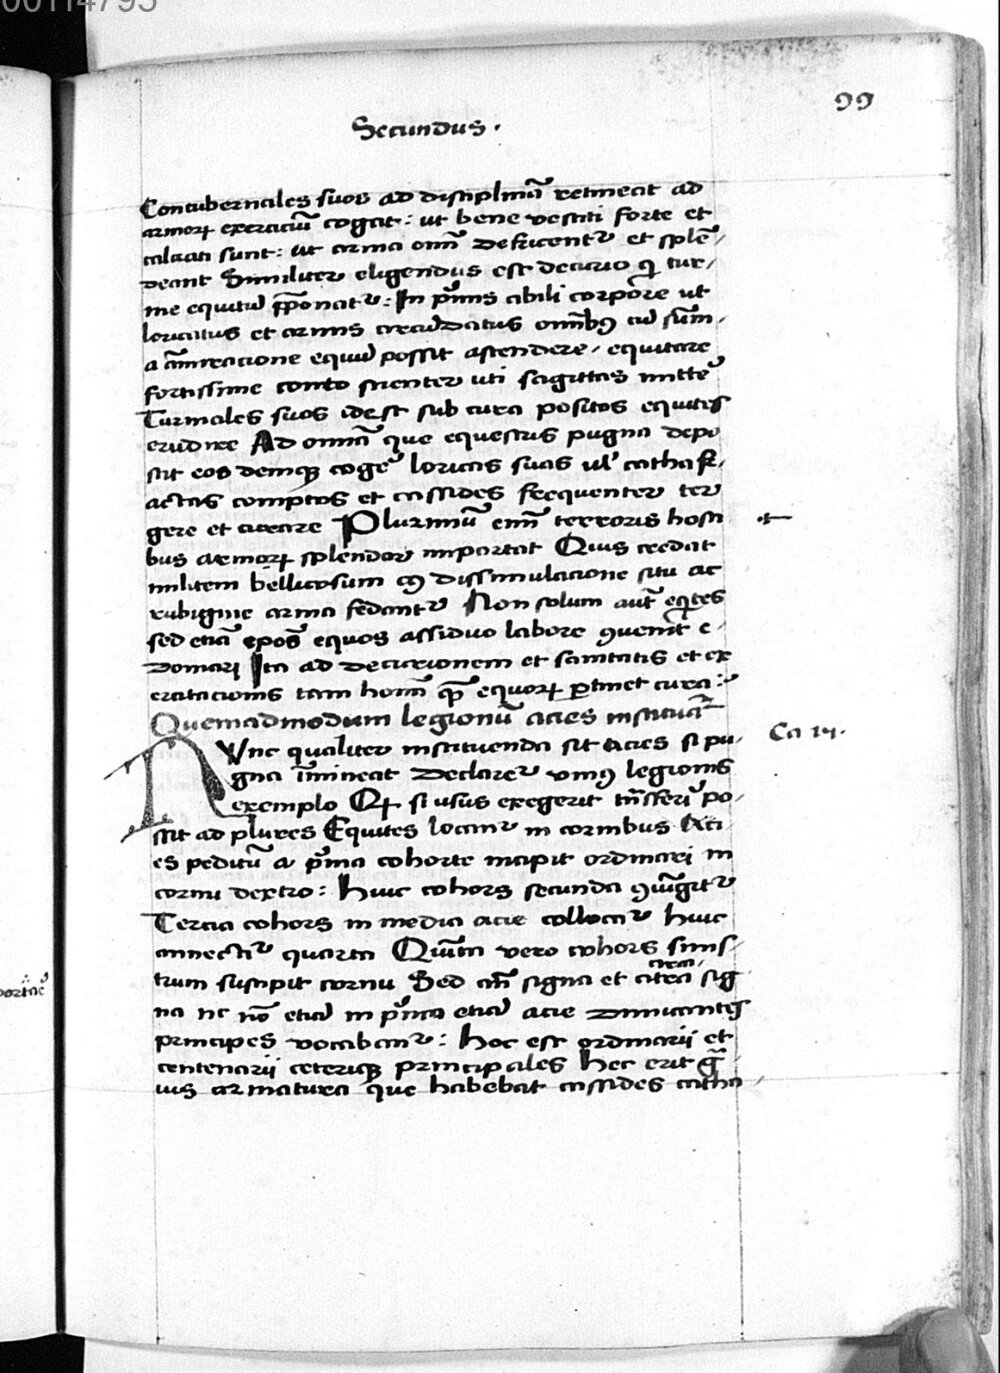 00114795
99
Secundus.
Contubernales suos ad disciplinā retineat ad
armoꝝ exerciciū cogat: ut bene vestiti forte et
calciati sunt: ut arma oīm defricentᷣ et splē-
deant Similiter eligendus est decurio q̇ tur-
me equitū p̄ponatᷣ: In p̄mis abili corpore ut
loricatus et armis circūdatus om̄ibꝰ cū sūm-
a āmiracione equū possit ascendere, equitare
fortissime conto scienter uti sagittas mittēʳ
Turmales suos idest sub cura positos equites
erudire Ad omnia que equestris pugna depo
scit eos demqꝫ cogēʳ loricas suas ul' cathafr-
actas comptos et cassides frequenter ter
gere et curare Plurimū enim terroris hosti
bus armoꝝ splendor importat Quis credat
militem bellicosum cꝰ dissimulacione situ ac
rubigine arma fedantᷣ Non solum aut̄ eq̇tes
sed etiā ip̄os equos assiduo labore ꝯuenit e-
domari Ita ad decurionem et sanitatis et ex
ercitacionis tam hominū qꝫ equoꝝ ꝑtinet cura:
Quemadmodum legionū acies instituatᷣ
Ca 14.
Nunc qualiter instituenda sit acies si pu-
gna īmineat declaretᷣ vniꝰ legionis
exemplo Qꝫ si usus exegerit trāsferri po-
ssit ad plures Equites locantᷣ in cornibus Aci
es peditū a p̄ma cohorte incipit ordinari in
cornu dextro: Huic cohors secunda ꝯiūgitᷣ
Tercia cohors in media acie collocatᷣ huic
annectitᷣ quarta Quīta vero cohors sinis-
trum suscipit cornu Sed an̄ signa et citra sig
circa.
na nc nō etiā in p̄ma etiā acie dimicantes
principes vocabantᷣ: Hoc est ordinarii et
centenarii ceteriqꝫ principales hec erit gᷓ-
uis armatura que habebat cassides catha-
portāt